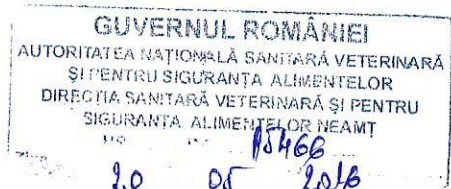 GUVERNUL ROMÂNIEI
AUTORITATEA NAȚIONALĂ SANITARĂ VETERINARĂ
ȘI PENTRU SIGURANȚA ALIMENTELOR
DIRECȚIA SANITARĂ VETERINARĂ ȘI PENTRU
SIGURANȚA ALIMENTELOR NEAMȚ
15466
20 05 2016